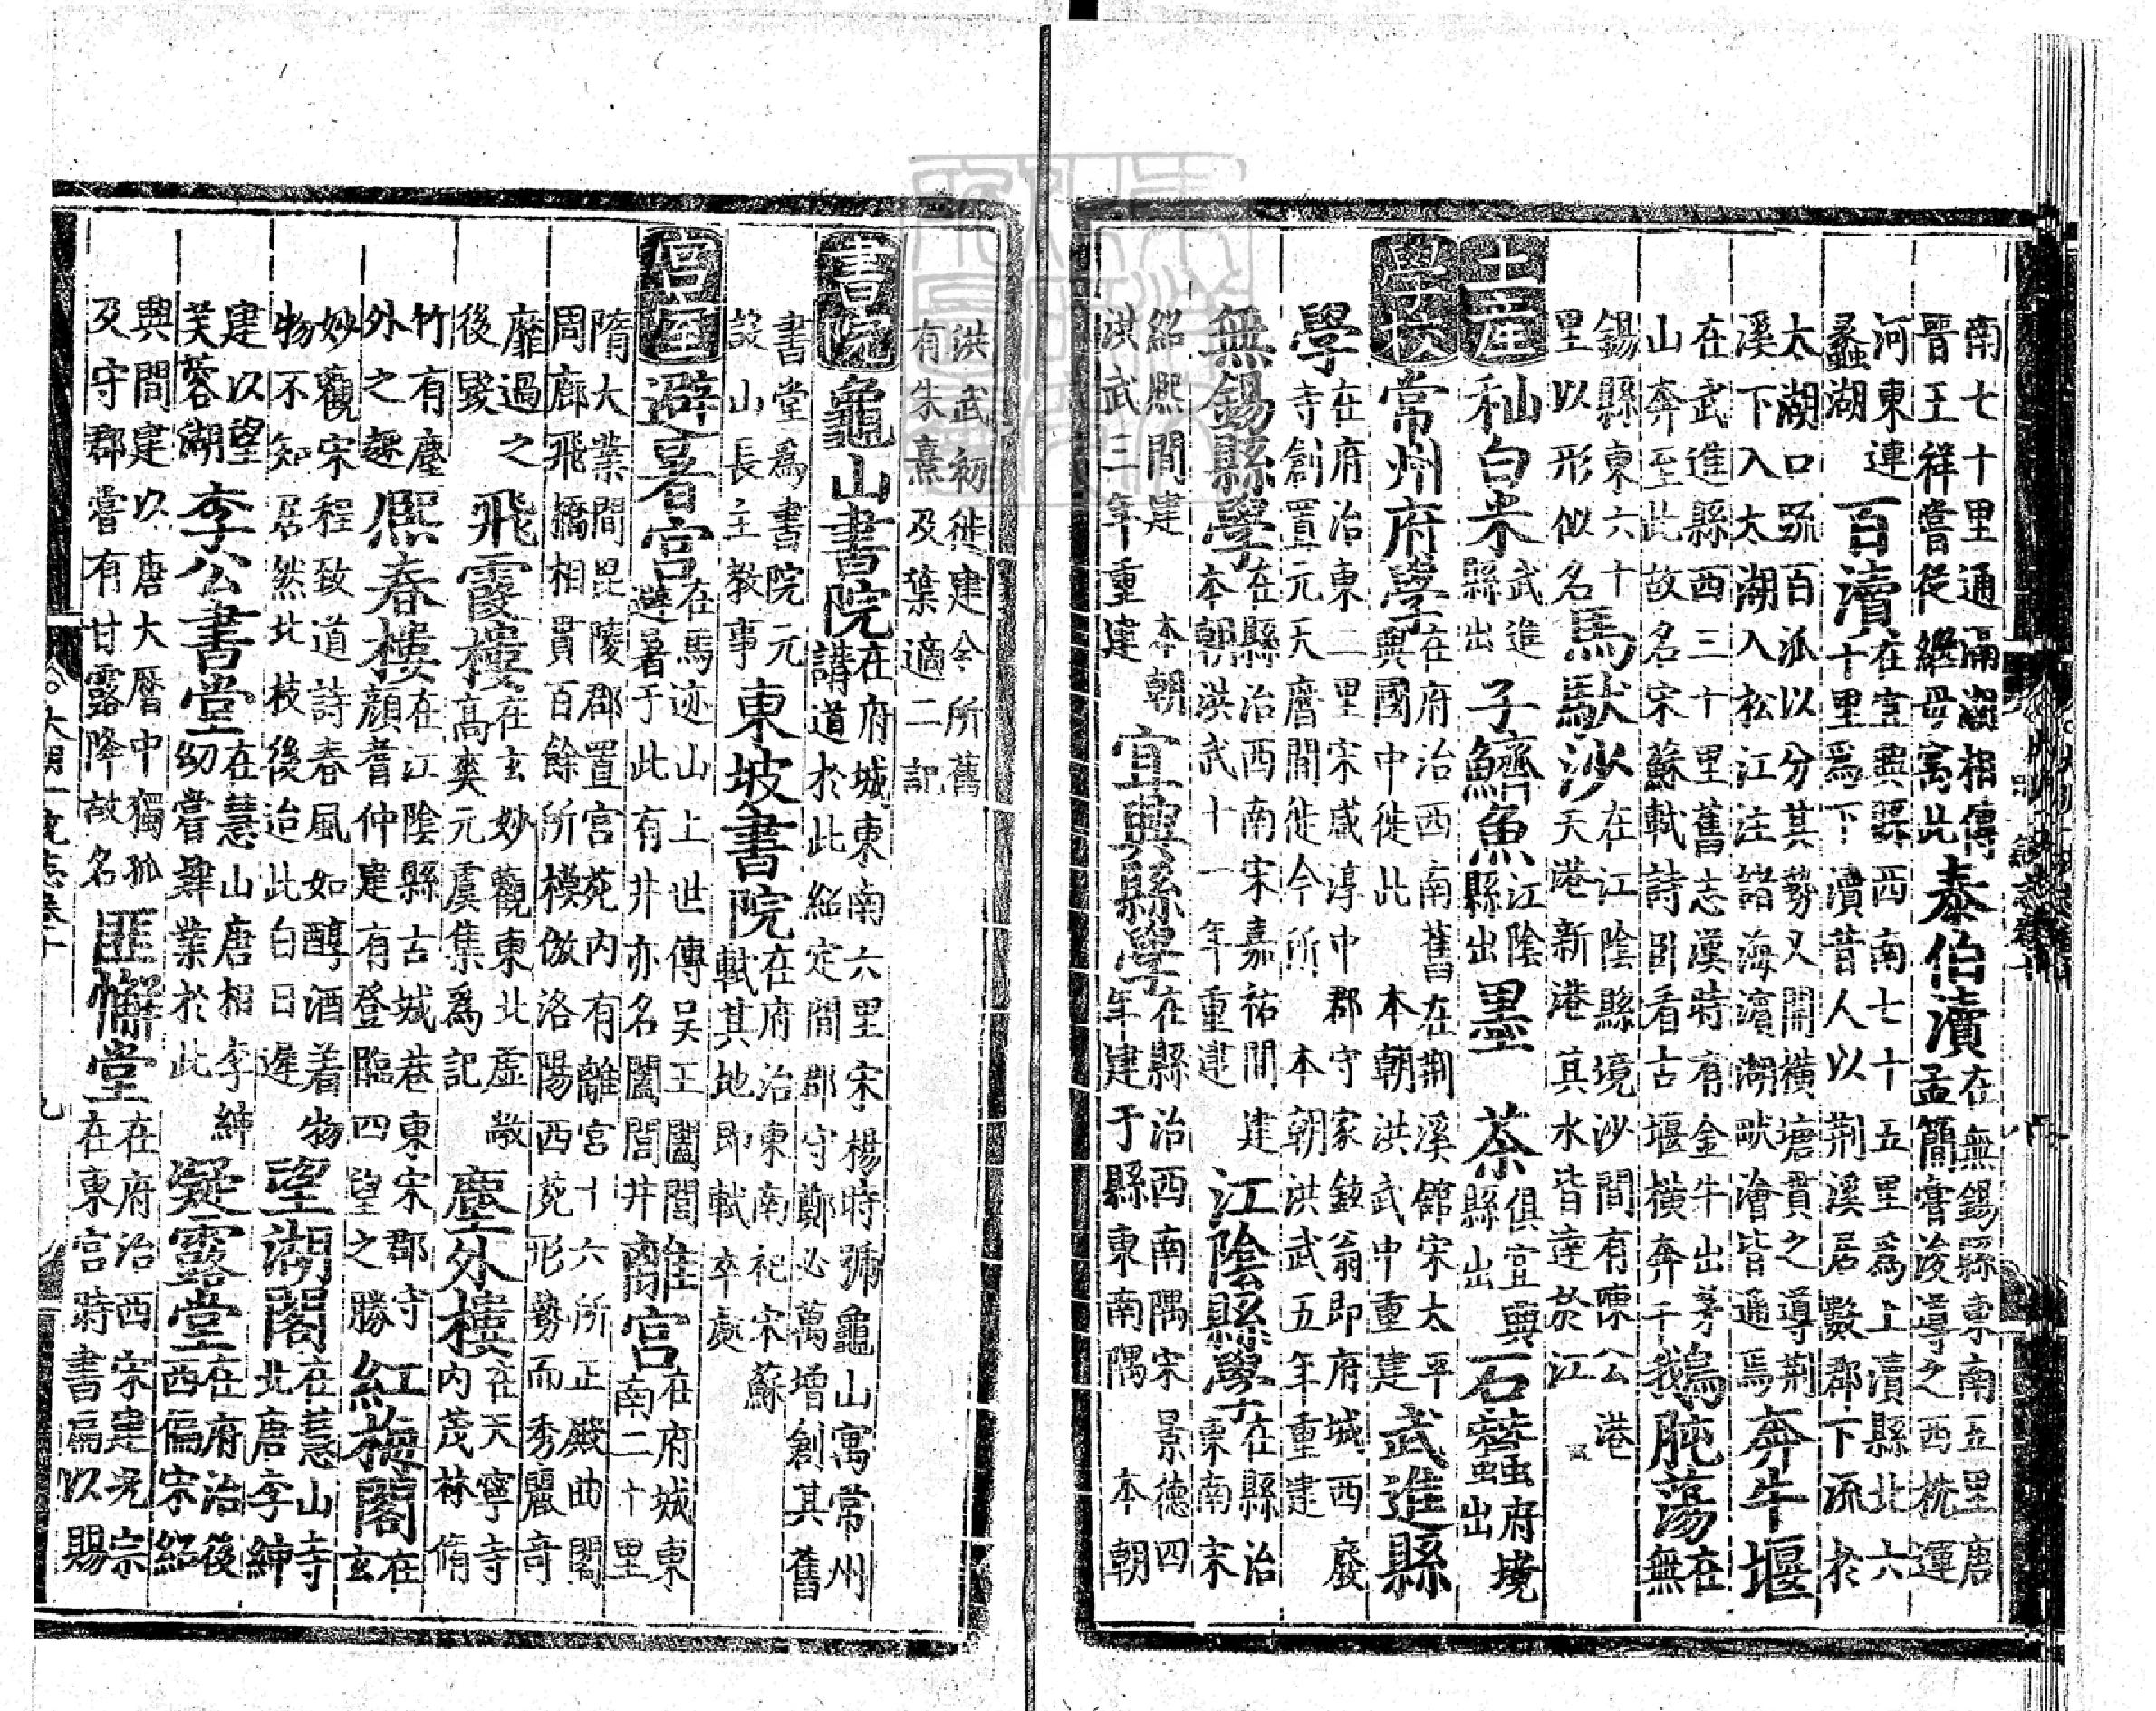 南七十里通滆湖相傳晉王祥嘗從繼母寓此泰伯瀆在無錫縣東南五里唐孟簡嘗浚導之西枕運
河東連蠡湖百瀆在宜興縣西南七十五里爲上瀆縣北六十里爲下瀆昔人以荆溪居數郡下流於
太湖口疏百派以分其勢又開橫塘貫之導荆溪下入太湖入松江注諸海瀆湖畎澮皆通焉奔牛堰
在武進縣西三十里舊志漢時有金牛出茅山奔至此故名宋蘇軾詩卧看古堰橫奔牛鵝肫蕩在無
錫縣東六十里以形似名馬馱沙在江陰縣境沙間有陳公港天港新港其水皆達於江
土産秈白米武進縣出子鱭魚江陰縣出墨茶俱宜興縣出石蠶府境出
學校常州府學在府治西南舊在荆溪舘宋太平興國中徙此本朝洪武中重建武進縣
學在府治東二里宋咸淳中郡守家鉉翁即府城西廢寺創置元天曆間徙今所本朝洪武五年重建
無錫縣學在縣治西南宋嘉祐間建本朝洪武十一年重建江陰縣學在縣治東南宋
紹熙間建本朝洪武三年重建宜興縣學在縣治西南隅宋景德四年建于縣東南隅本朝
洪武初徙建今所舊有朱熹及葉適二記
書院龜山書院在府城東南六里宋楊時號龜山寓常州講道於此紹定間郡守鄭必萬增創其舊
書堂爲書院元設山長主教事東坡書院在府治東南祀宋蘇軾其地即軾卒處
宮室避暑宮在馬迹山上世傳吴王闔閭避暑于此有井亦名闔閭井離宮在府城東南二十里
隋大業間毘陵郡置宮苑内有離宮十六所正殿曲閣周廊飛橋相貫百餘所模倣洛陽西苑形勢而秀麗竒
靡過之後燬飛霞樓在玄妙觀東北虛敞高爽元虞集爲記塵外樓在天寧寺内茂林脩
竹有塵外之趣熙春樓在江陰縣古城巷東宋郡守顏耆仲建有登臨四望之勝紅梅閣在玄
妙觀宋程致道詩春風如醇酒着物物不知居然北枝後迨此白日遲望湖閣在慧山寺北唐李紳
建以望芙蓉湖李公書堂在慧山唐相李紳幼嘗肄業於此凝露堂在府治後西偏宋紹
興間建以唐大曆中獨孤及守郡嘗有甘露降故名匪懈堂在府治西宋建光宗在東宮時書扁以賜
大明一統志卷十
九